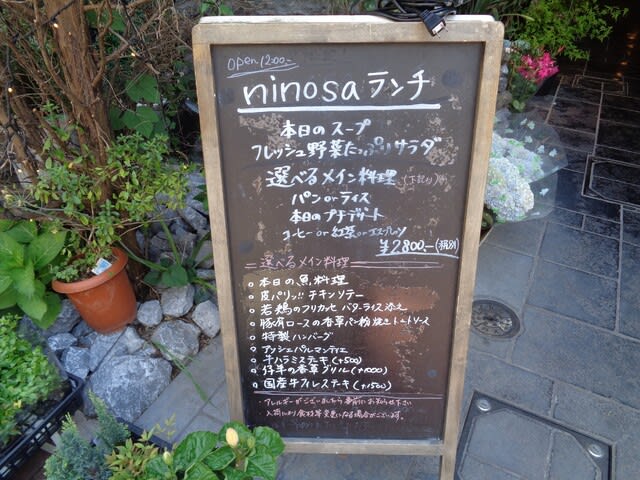 open. 12:00~
ninosa ランチ
本日のスープ
フレッシュ野菜たっぷりサラダ
選べるメイン料理 (下記より)
パン or ライス
本日のプチデザート
コーヒー or 紅茶 or エスプレッソ
¥2800- (税別)
選べるメイン料理
本日の魚料理
皮パリッ!! チキンソテー
若鶏のフリカッセ バターライス添え
豚肩ロースの香草パン粉焼き トマトソース
特製ハンバーグ
アッシェパルマンティエ
牛ハラミステーキ (+500)
仔羊の香草グリル (+1000)
国産牛フィレステーキ (+1500)
・アレルギーがございましたら事前にお知らせ下さい
・入荷により食材等変更になる場合がございます。